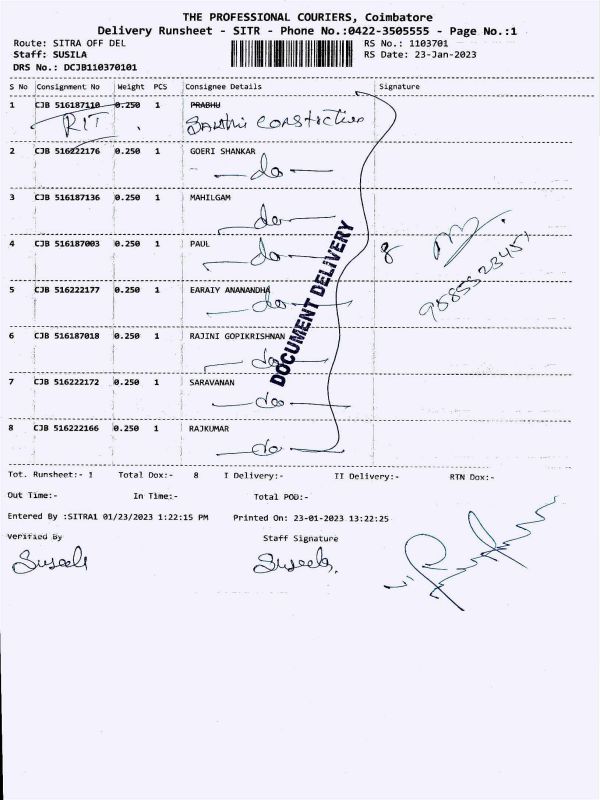 THE PROFESSIONAL COURIERS, Coimbatore
Delivery Runsheet - SITR - Phone No.:0422-3505555 - Page No.:1
Route: SITRA OFF DEL RS No.: 1103701
Staff: SUSILA RS Date: 23-Jan-2023
DRS No.: DCJB110370101
S No Consignment No Weight PCS Consignee Details Signature
1 CJB 516187110 0.250 1 PRABHU
RIT
2 CJB 516222176 0.250 1 GOERI SHANKAR
do
3 CJB 516187136 0.250 1 MAHILGAM
do
4 CJB 516187003 0.250 1 PAUL 8
do
5 CJB 516222177 0.250 1 EARAIY ANANANDHA
do
9585523451
6 CJB 516187018 0.250 1 RAJINI GOPIKRISHNAN
do
DOCUMENT DELIVERY
7 CJB 516222172 0.250 1 SARAVANAN
do
8 CJB 516222166 0.250 1 RAJKUMAR
do
Tot. Runsheet:- 1 Total Dox:- 8 I Delivery:- II Delivery:- RTN Dox:-
Out Time:- In Time:- Total POD:-
Entered By :SITRA1 01/23/2023 1:22:15 PM Printed On: 23-01-2023 13:22:25
Verified By Staff Signature